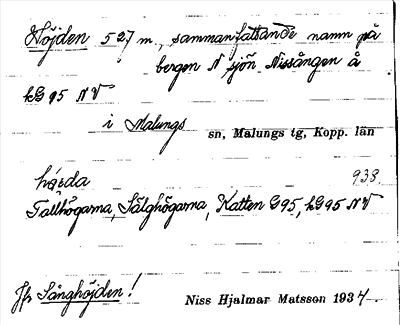 Höjden 527 m., sammanfattande namn på
bergen N sjön Nissången å
kG95 NV
i Malungs sn, Malungs tg, Kopp. län
938
Tallhögarna, Sälghögarna, Katten G95, kG95 NV
Jfr Sånghöjden! Niss Hjalmar Matsson 1934.